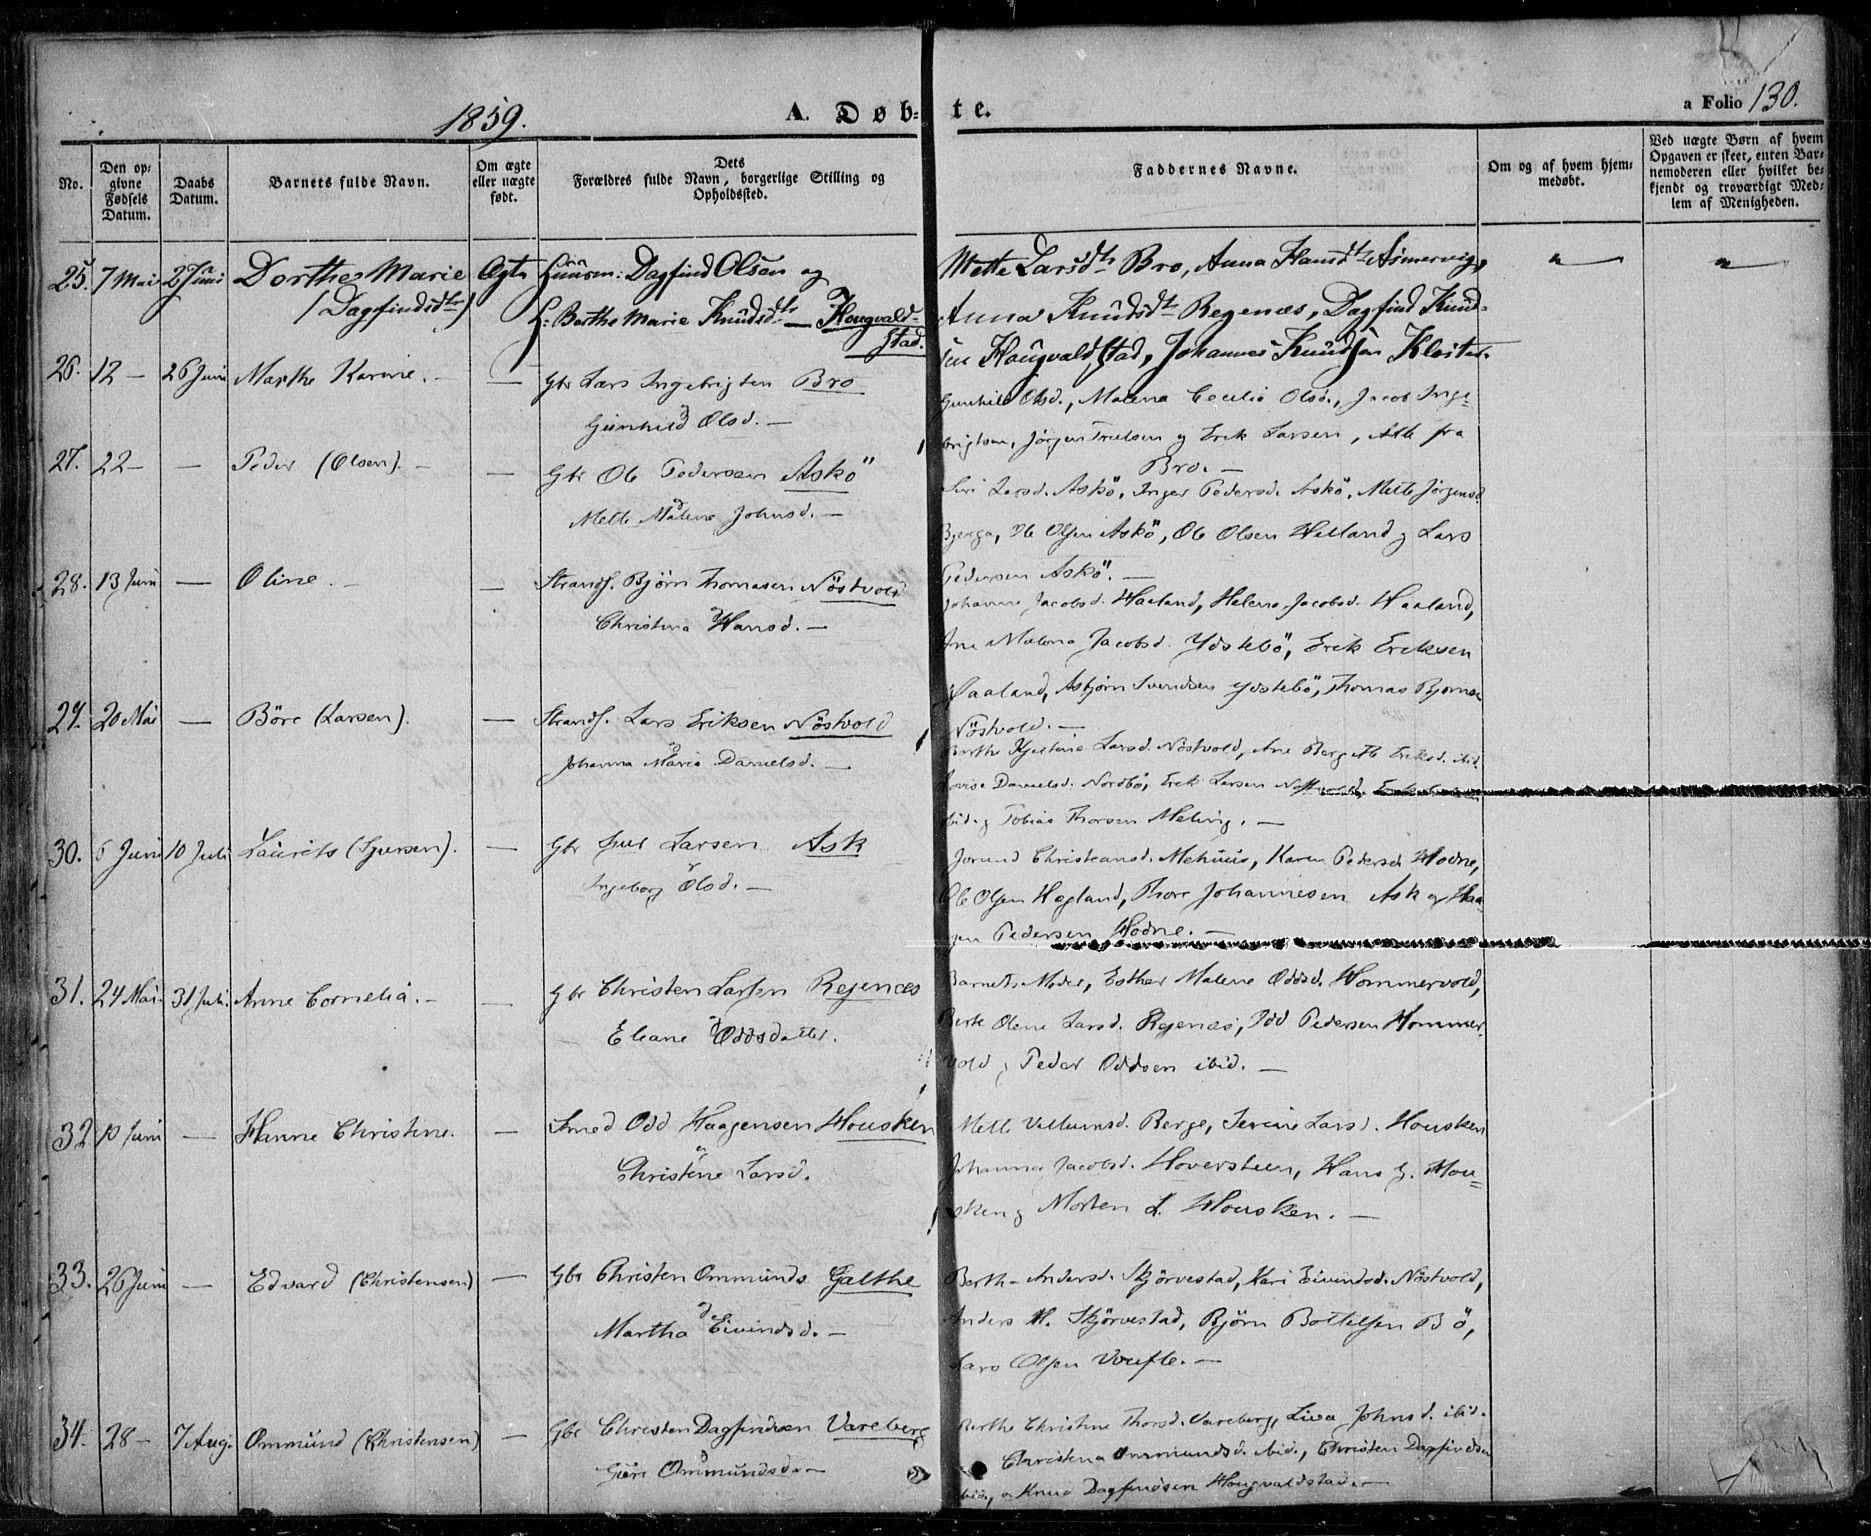 1859.
A. Døb-
te.
a Folio 130.
No.
Den op-
givne
Fødsels
Datum.
Daabs
Datum.
Barnets fulde Navn.
Om ægte
eller uægte
født.
Dets
Forældres fulde Navn, borgerlige Stilling og
Opholdssted.
Faddernes Navne.
Om og af hvem hjem-
medøbt.
Ved uægte Børn af hvem
Opgaven er skeet, enten Bar-
nemoderen eller hvilket be-
kjendt og troværdigt Med-
lem af Menigheden.
25. 7 Mai 2 Juni Dorthe Marie Ægte Huusm: Dagfind Olsen og
(Dagfindsdtr) H: Berthe Marie Knudsdtr — Hougvald-
stad.
Mette Larsdtr Bro, Anna Hansdtr Asmervig,
Anna Knudsdtr Regenæs, Dagfind Knud-
sen Hougvaldstad, Johannes Knudsen Kloster.
26. 12 — 26 Juni Marthe Karine. — — Gbr Lars Ingebrigtsen Bro
Gunhild Olsd. —
Gunhild Olsd., Malena Cecilia Olsd., Jacob Inge-
brigtsen, Jørgen Truelsen og Erik Larsen, Alle fra
Bro. —
27. 22 — — Peder (Olsen). — — Gbr Ole Pedersen Askö
Mette Malene Johnsd. —
Siri Larsd. Askö, Inger Pedersd. Askö, Mette Jørgensd
Bjerga, Ole Olsen Askö, Ole Olsen Helland og Lars
Pedersen Askö. —
28. 13 Juni — Oline. — — Strands. Bjørn Thomasen Nöstvold
Christina Hansd. —
Johanne Jacobsd. Haaland, Helene Jacobsd. Haaland,
Ane Malena Jacobsd. Ydstebö, Erik Eriksen
Haaland, Asbjørn Svendsen Ydstebö, Thomas Bjørnsen
Nöstvold. —
29. 20 Mai — Böre (Larsen). — Strands. Lars Eriksen Nöstvold
Johanna Maria Danielsd. —
Berthe Larsd. Nöstvold, Ane Bergitte Eriksd. ibid.
Lovise Danielsd. Nordbö, Erik Larsen Nöstvold,
ibid. og Tobias Thorsen Meling. —
30. 6 Juni 10 Juli Laurits (Sjursen). — Gbr Sjur Larsen Ask
Ingeborg Olsd. —
Jorund Christiansd. Mehuus, Karen Pedersd. Hodne,
Ole Olsen Hegland, Thore Johannesen Ask og Haa-
gen Pedersen Hodne. —
31. 24 Mai. 31 Juli. Anne Cornelia. — — Gbr Christen Larsen Regenæs
Eleane Oddsdatter.
Barnets Moder, Esther Malene Oddsd. Hommervold,
Berte Olene Larsd. Regenæs, Odd Pedersen Hommer-
vold og Peder Oddsen ibid. —
32. 10 Juni — Hanne Christine. — Smed Odd Haagensen Housken
Christine Larsd.
Mette Villumsd. Berge, Serine Larsd. Housken
Johanna Jacobsd. Hoversteen, Hans J. Hou-
sken og Morten L. Housken. —
33. 26 Juni — Edvard (Christensen) — Gbr Christen Ommunds. Galthe
Martha Eivindsd. —
Berthe Andersd. Skjörvestad, Kari Eivindsd. Nöstvold,
Anders H. Skjörvestad, Bjørn Bottelsen Bö,
Lars Olsen Voufle. —
34. 28 — 7 Aug. Ommund (Christensen) — Gbr Christen Dagfindsen Vareberg
Guri Ommundsd. —
Berthe Christine Thorsd. Vareberg, Liva Johnsd. ibid.
Christina Ommundsd. ibid., Christen Dagfindsen
ibid., og Knud Dagfindsen Hougvaldstad. —